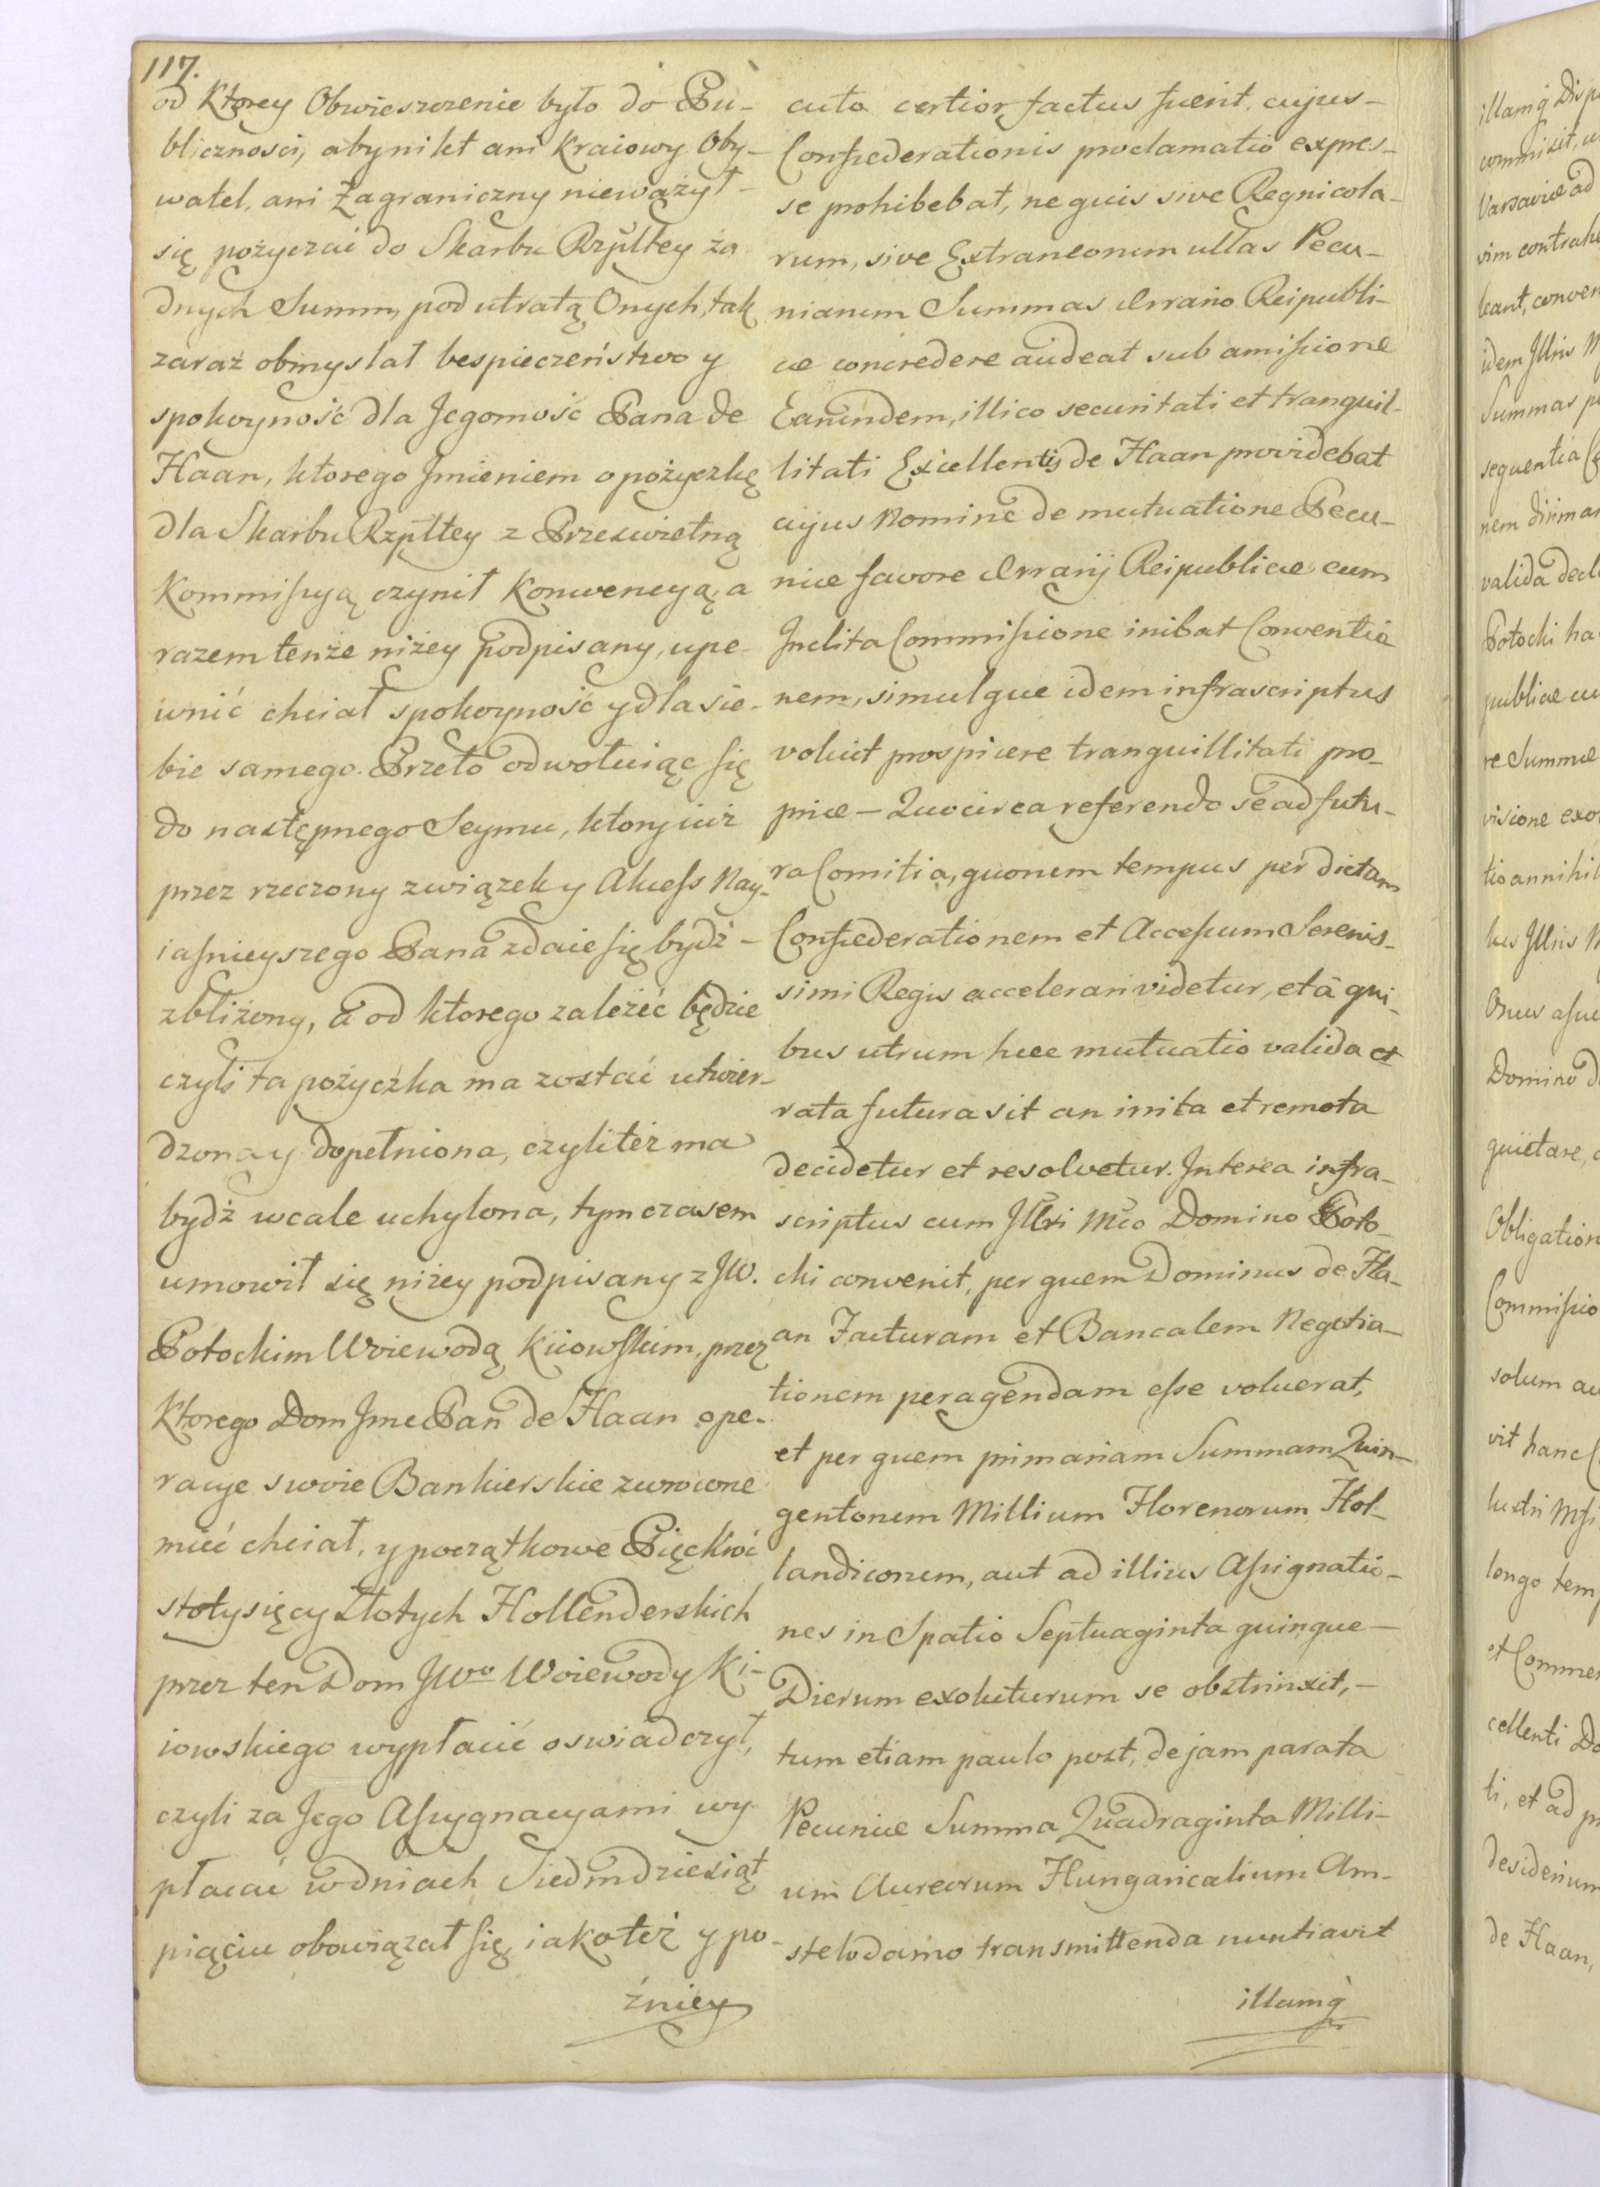 117.
od Ktorey Obwieszczenie było do Pu-
bliczności, aby nikt ani Kraiowy Oby-
watel, ani Zagraniczny nieważył-
się pożyczać do Skarbu Rzpltey ża
dnych Summ, pod utratą Onych, tak
zaraz obmyslał bespieczeństwo y
spokoyność dla Jegomość Pana de
Haan, ktorego Jmieniem o pożyczkę
dla Skarbu Rzpltey z Prześwietną
Kommissyą czynił Konwencyą, a
razem tenże niżey podpisany, upe-
wnić chciał spokoyność y dla sie-
bie samego. Przeto odwołuiąc się
do następnego Seymu, ktory iuż
przez rzeczony związek y Akcess Nay-
iasnieyszego Pana zdaie się bydź-
zbliżony, a od ktorego zależeć będzie
czyli ta pożyczka ma zostać utwier-
dzona y dopełniona, czyli też ma
bydź wcale uchylona, tymczasem
umowił się niżey podpisany z JW.
Potockim Woiewodą Kiiowskim, przez
Ktorego Dom Jme Pan de Haan ope-
racye swoie Bankierskie zwrocone
mieć chciał, y początkowe Pięckroć
stotysięcy Złotych Hollenderskich
przez ten Dom JWo Woiewody Ki-
iowskiego wypłacić oswiadczył,
czyli za Jego Assygnacyami wy-
płacać w dniach Siedmdziesiąt
pięciu obowiązał się, iako też y po-
źniey
cuto certior factus fuerit, cujus-
Confæderationis proclamatio expres-
se prohibebat, ne quis sive Regnicola-
rum, sive Extraneorum ullas Pecu-
niarum Summas Ærrario Reipubli-
cæ concredere audeat sub amissione
Earundem, illico securitati et tranquil-
litati Excellentis de Haan providebat
cujus Nomine de mutuatione Pecu-
niæ favore Ærrarij Reipublicæ cum
Inclita Commissione inibat Conventio
nem, simulque idem infrascriptus
voluit prospicere tranquillitati pro-
priæ - Quocirca referendo se ad futu-
ra Comitia, quorum tempus per dictam
Confæderationem et Accessum Serenis-
simi Regis accelerari videtur, et à qui-
bus utrum hæc mutuatio valida et
rata futura sit an irrita et remota
decidetur et resolvetur. Interea infra-
scriptus cum Jllri Mco Domino Poto-
cki convenit, per quem Dominus de Ha-
an Facturam et Bancalem Negotia-
tionem peragendam esse voluerat,
et per quem primariam Summam Quin-
gentorum Millium Florenorum Hol-
landicorum, aut ad illius Assignatio-
nes in Spatio Septuaginta quinque-
Dierum exoluturum se obstrinxit,-
tum etiam paulo post, de jam parata
Pecuniæ Summa Quadraginta Milli-
um Aureorum Hungaricalium Am-
stelodamo transmittenda nuntiavit
illamq̀
illamq̀
commisit,
Varsaviæ ad
idem Jllris
Summas
sequentia
valida
Potocki
publicæ
re Summæ
visione
Domino
Obligation
Commissio
solum
vit hanc
longo
ti, et ad
de Haan,